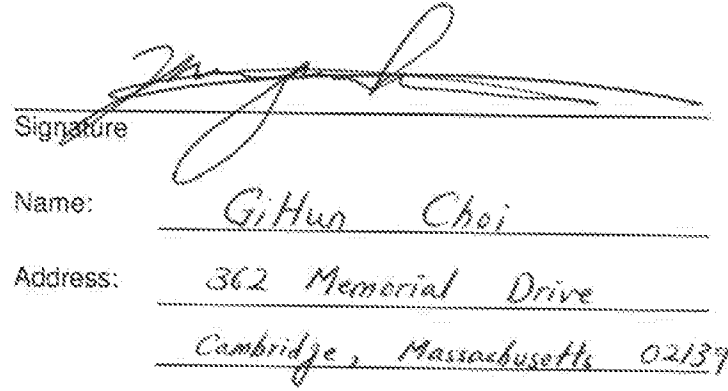 Signature
Name: GiHun Choi
Address: 362 Memorial Drive
Cambridge, Massachusetts 02139